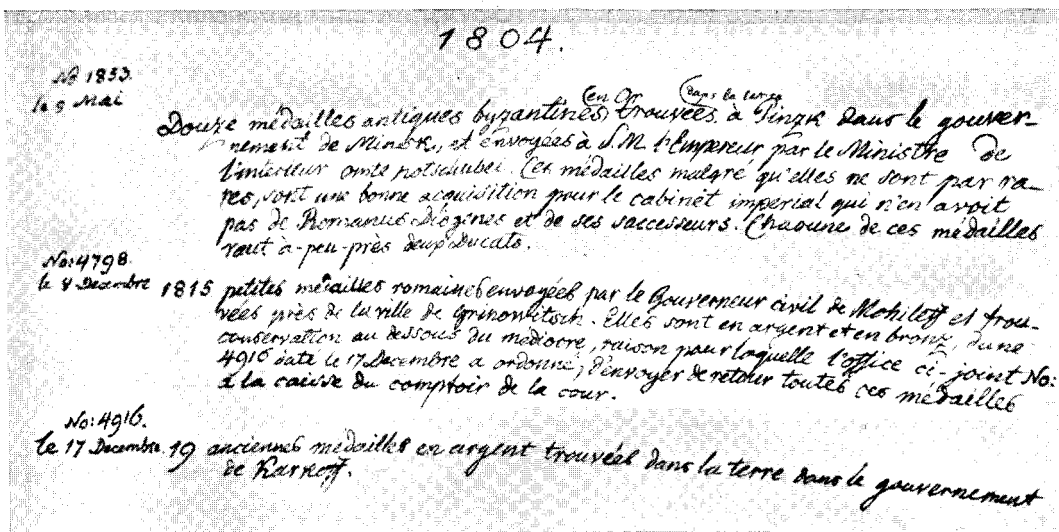 1804.
No 1853.
le 9 Mai
(en Or (dans la terre
Douze médailles antiques byzantines, trouvées à Pinzk dans le gouver-
nement de Minsk, et envoyées à S.M. l'Empereur par le Ministre de
l'intérieur Comte Kotschubei. Ces médailles malgré qu'elles ne sont pas ra-
res, sont une bonne acquisition pour le cabinet imperial qui n'en avoit
pas de Romanus Diogenes et de ses successeurs. Chacune de ces médailles
vaut a-peu-près deux Ducats.
No: 4798.
le 8 Decembre
1815 petites médailles romaines envoyées par le Gouverneur civil de Mohileff et trou-
vées près de la ville de . Elles sont en argent et en bronz, d'une
conservation au dessous du mediocre, raison pour laquelle l'office ci-joint No:
4916 daté le 17 Decembre a ordonné, d'envoyer de retour toutes ces médailles
à la caisse du comptoir de la cour.
No: 4916.
le 17 Decembre.
19 anciennes médailles en argent trouvées dans la terre dans le gouvernement
de Karkoff.